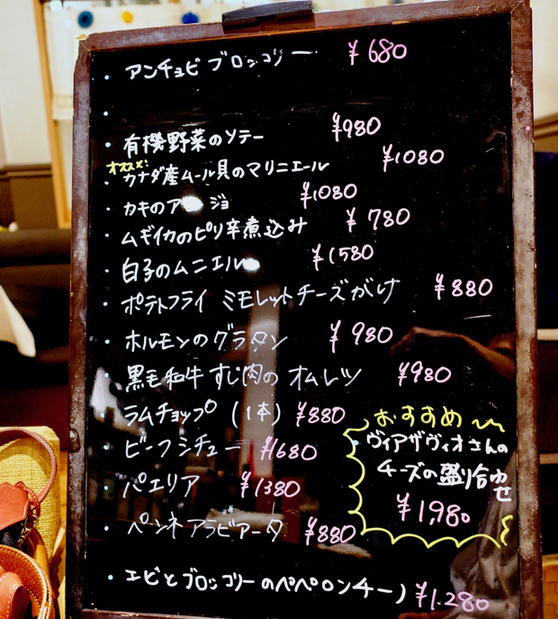 ・アンチョビ ブロッコリー ¥680
・
・有機野菜のソテー ¥980
オススメ!
・カナダ産ムール貝のマリニエール ¥1080
・カキのア ジョ ¥1080
・ムギイカのピリ辛煮込み ¥780
・白子のムニエル ¥1580
・ポテトフライ ミモレットチーズがけ ¥880
・ホルモンのグラタン ¥980
・黒毛和牛すじ肉のオムレツ ¥980
・ラムチョップ(1本) ¥880
・ビーフシチュー ¥1680
・パエリア ¥1380
・ペンネアラビアータ ¥880
おすすめ
・ヴィアザヴィオさんの
チーズの盛り合わせ
¥1,980
・エビとブロッコリーのペペロンチーノ ¥1.280